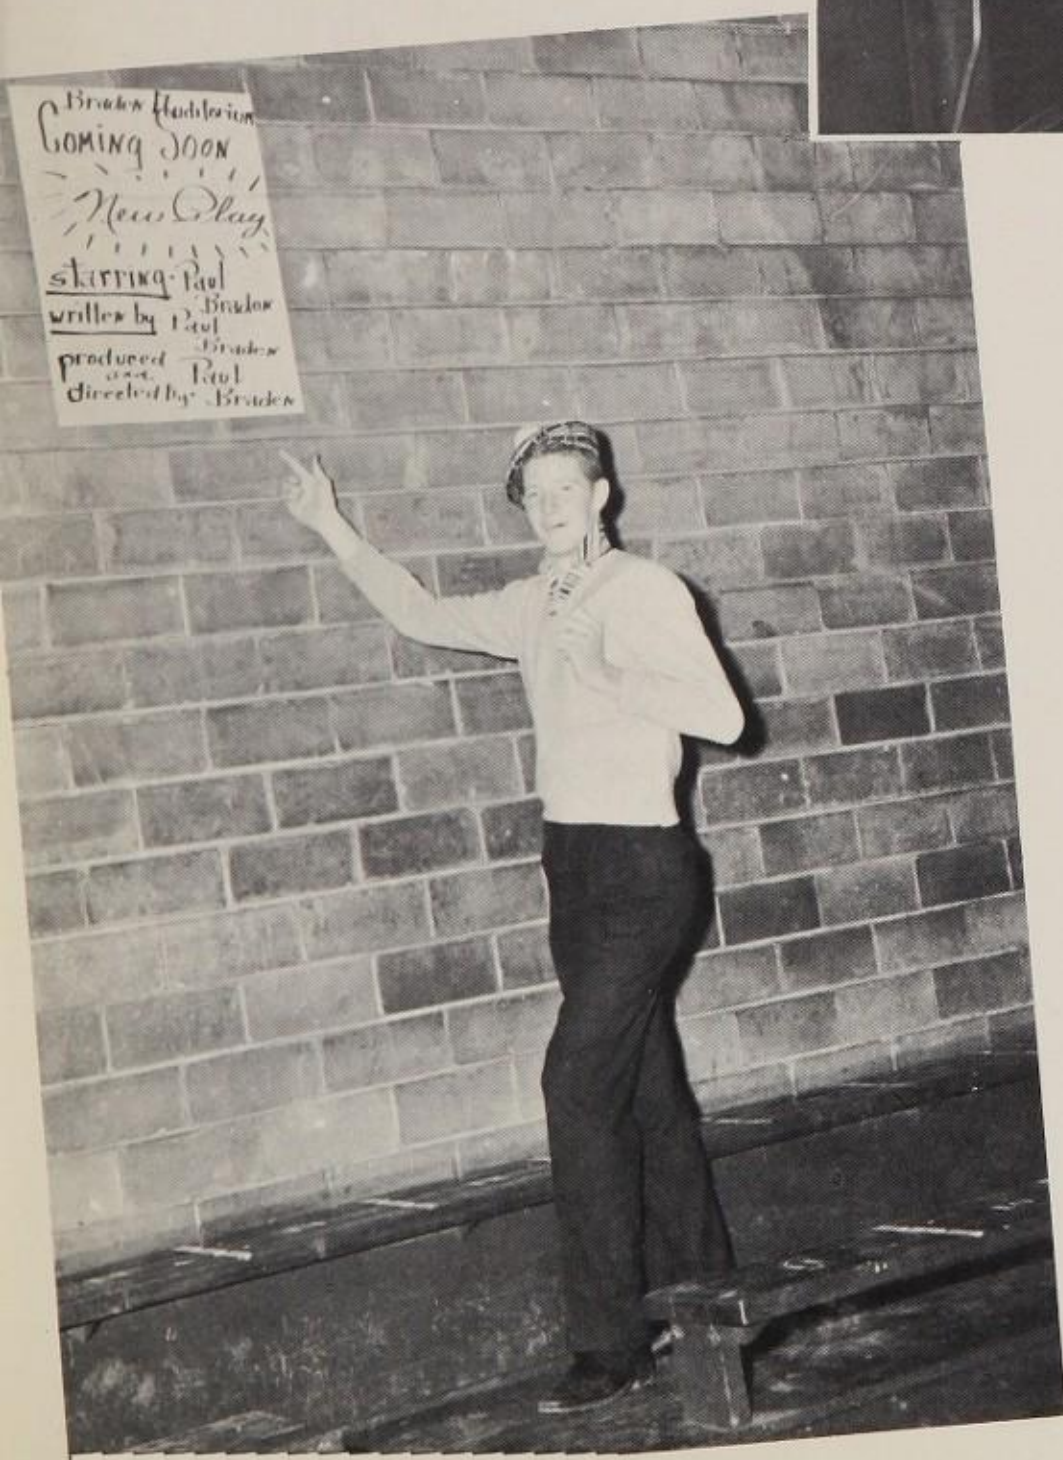 Braden Auditorium
COMING SOON
New Play
starring- Paul
Braden
written by Paul
Braden
produced Paul
and
directed by Braden